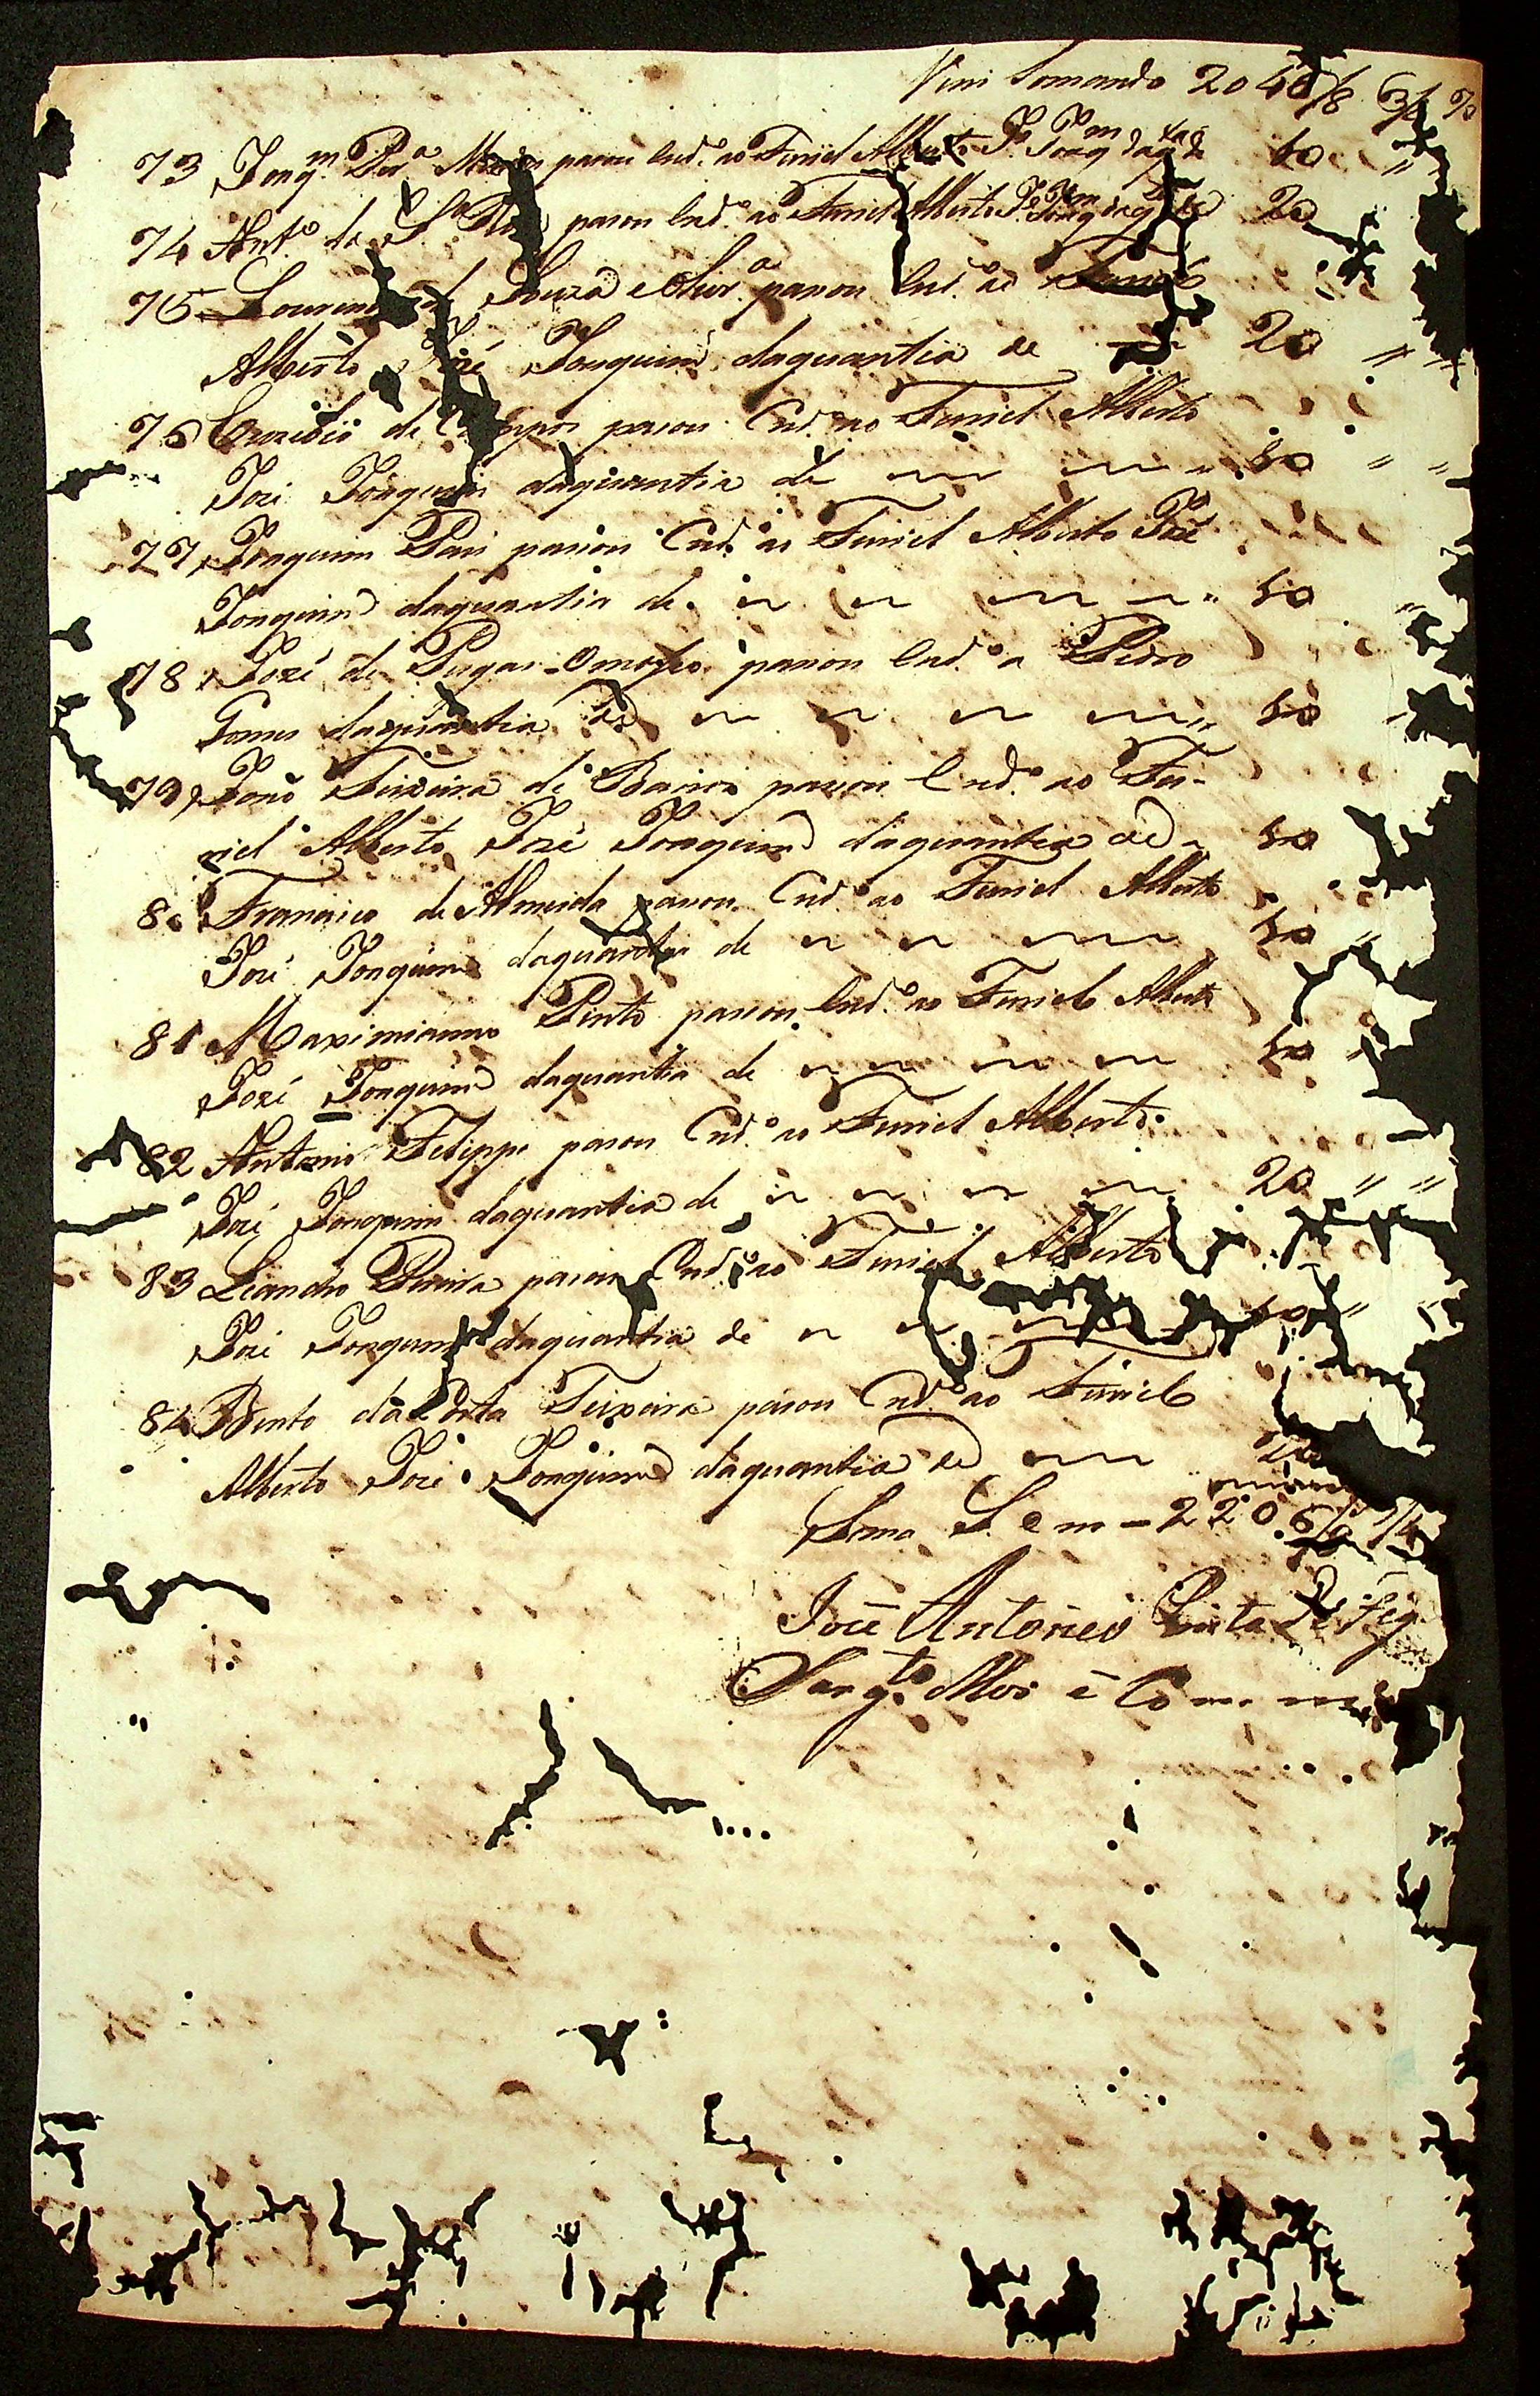 Vim Somando 2040/8 3/4
73 Joaq.m Per.a passou Cred.o ao Furriel Alberto J.e Joaq.m daq.tia de 10 "
74 Ant.o da S.a passou Cred.o ao Furriel Alberto J.e Joaq.m daq.tia de 20
75 Lourenço de Souza Olivr.a passou Cred.o ao Furriel
Alberto José Joaquim daquantia de 20 " "
76 de Campos passou Cred.o ao Furriel Alberto
José Joaquim daquantia de 10 " "
77 Joaquim Pais passou Cred.o ao Furriel Alberto José
Joaquim daquantia de 10 "
78 José de passou Cred.o a Pedro
Gomes daquantia de 10 "
79 João Teixeira de Barros passou Cred.o ao Fur-
riel Alberto José Joaquim daquantia de 10
80 Francisco de Almeida passou Cred.o ao Furriel Alberto
José Joaquim daquantia de 10 "
81 Maximianno Pinto passou Cred.o ao Furriel Alberto
José Joaquim daquantia de 10 "
82 Antonio Felippe passou Cred.o ao Furriel Alberto
José Joaquim daquantia de 20 " "
83 Leandro Pereira passou Cred.o ao Furriel Alberto
José Joaquim daquantia de 10 "
84 Bento da Costa Teixeira passou Cred.o ao Furriel
Alberto José Joaquim daquantia de
Soma S. e m - 2206/8 1/4
José Antoneo Pinto de Fig
Sarg.to Mor e Com